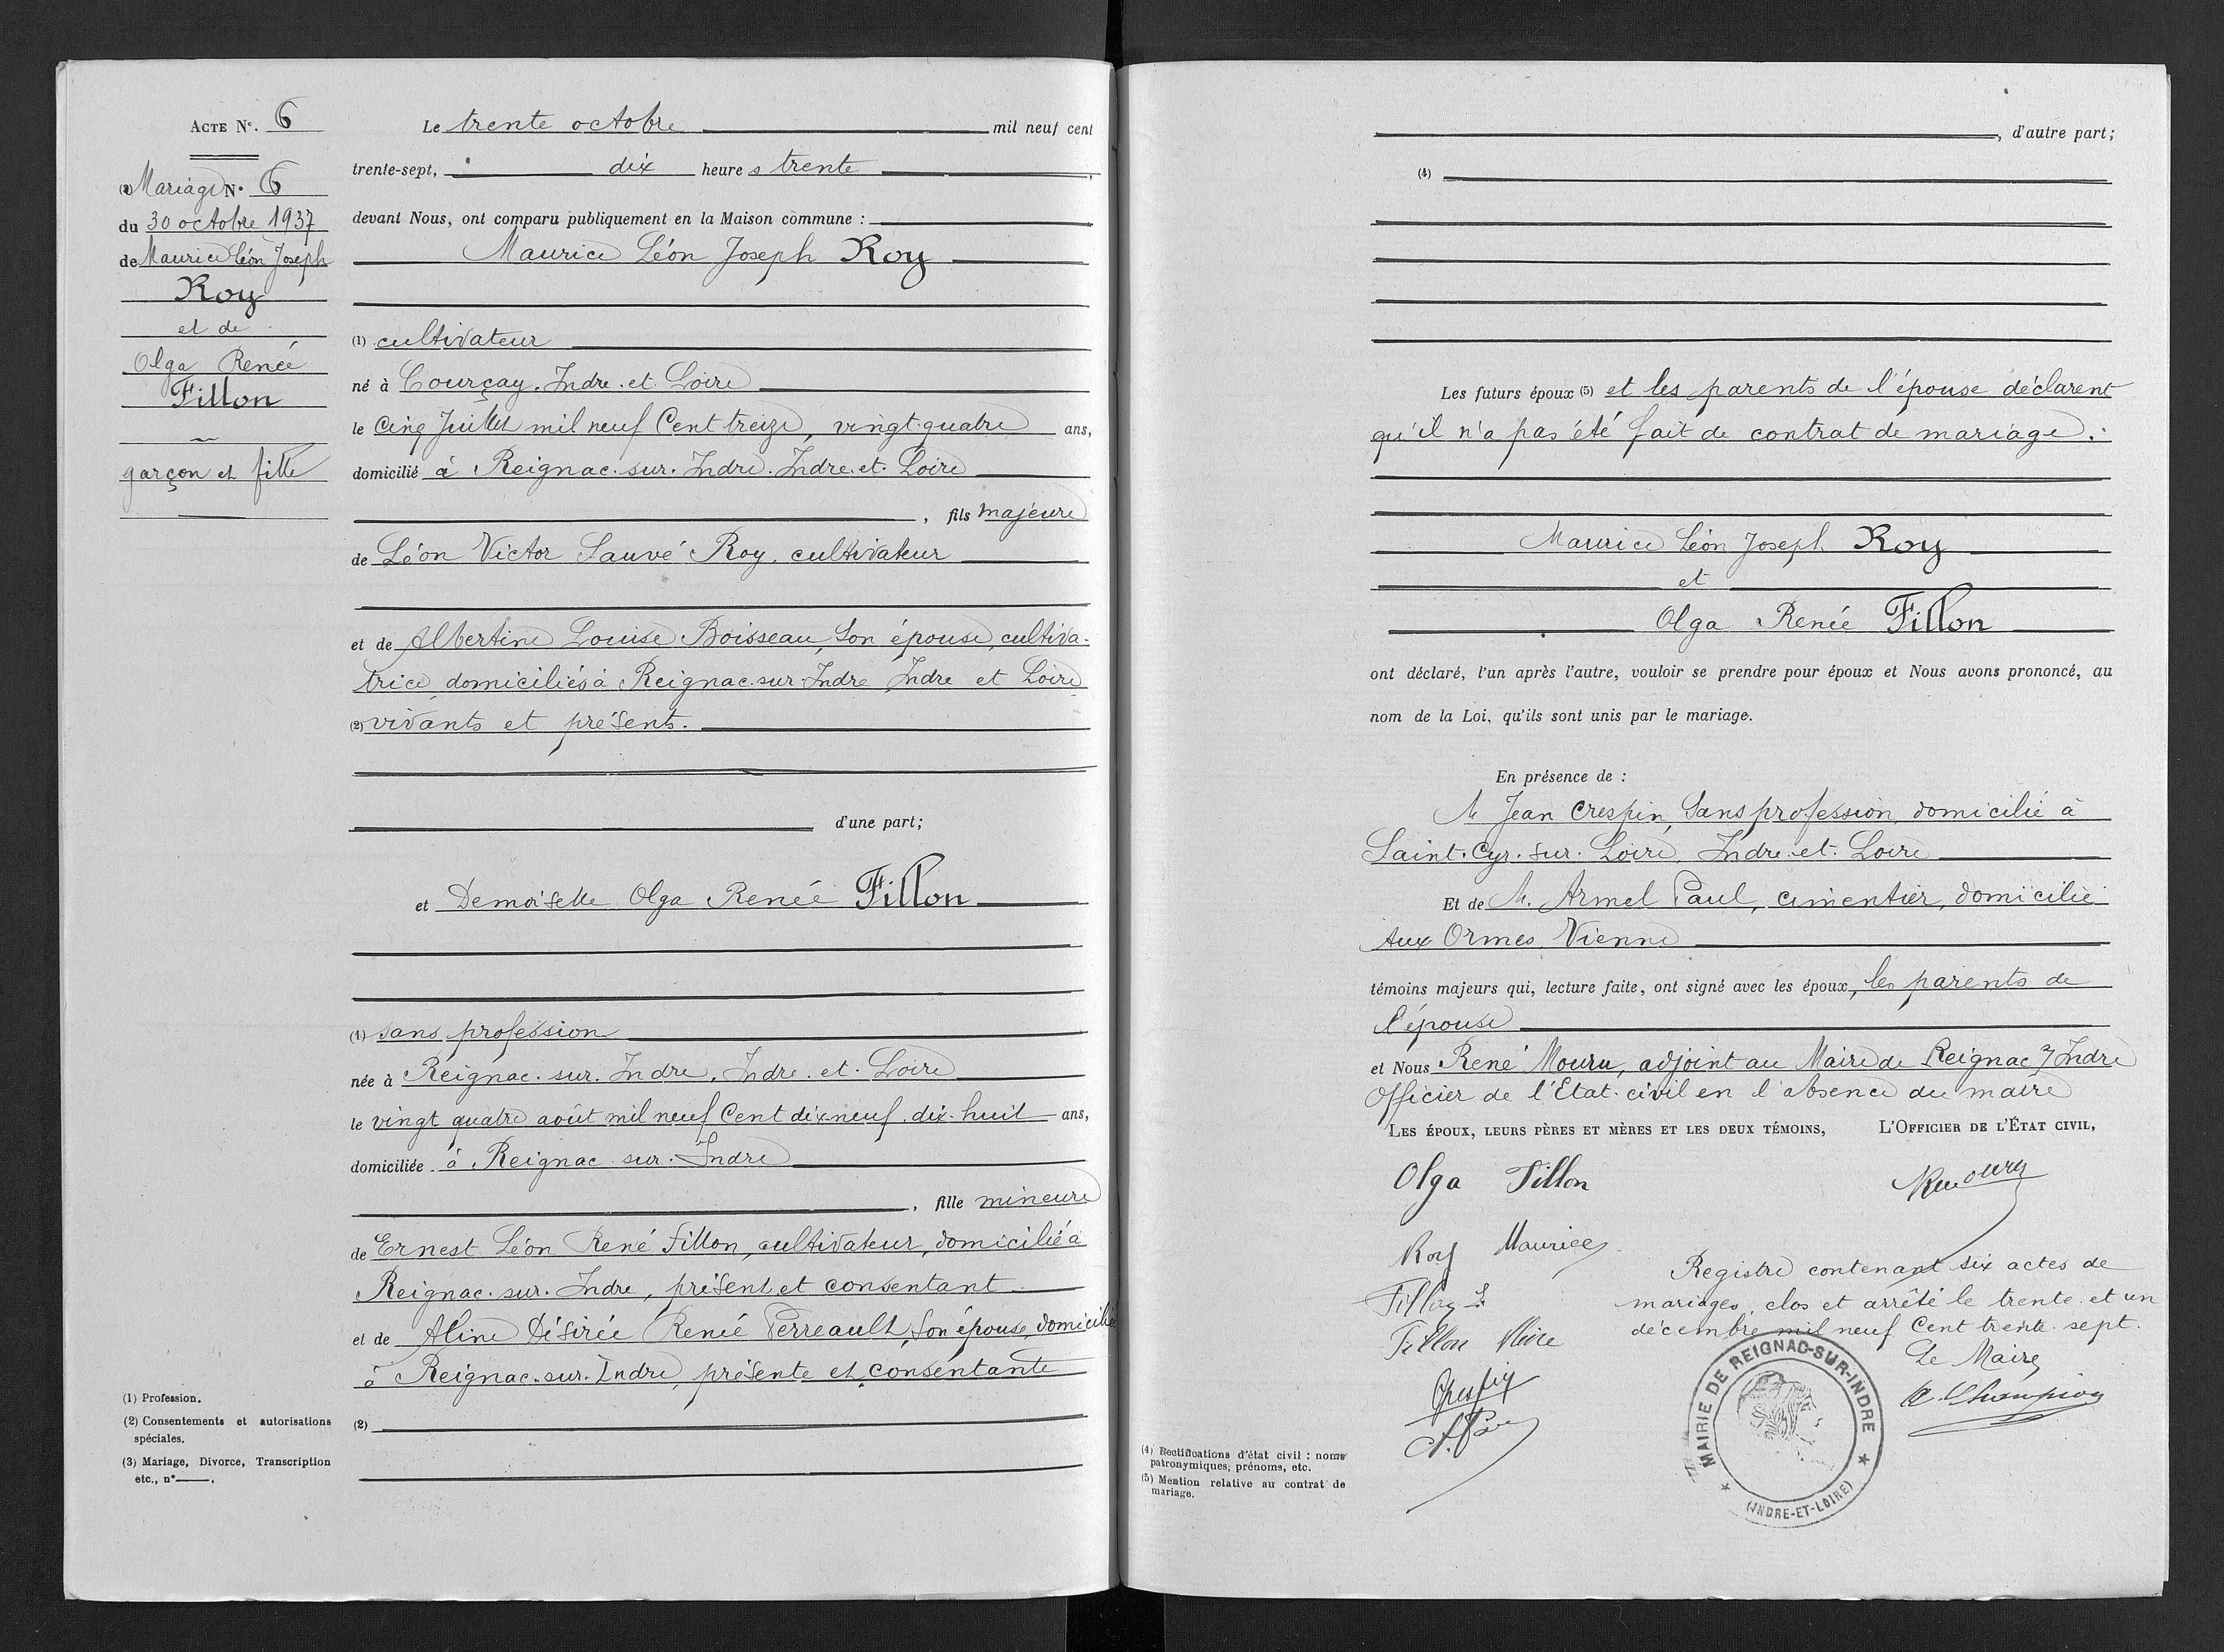 ACTE N°. 6
(3) Mariage N° 6
du 30 octobre 1937
de Maurice Léon Joseph
Roy
et de
Olga Renée
Fillon
garçon et fille
Le trente octobre mil neuf cent
trente-sept, dix heures trente,
devant Nous, ont comparu publiquement en la Maison commune :
Maurice Léon Joseph Roy
(1) cultivateur
né à Courçay. Indre. et. Loire
le cinq Juillet mil neuf Cent treize, vingt-quatre ans,
domicilié à Reignac. sur. Indre. Indre. et. Loire
, fils majeure
de Léon Victor Sauvé Roy, cultivateur
et de Albertine Louise Boisseau, son épouse, cultiva-
trice, domiciliés à Reignac. sur. Indre Indre et Loire
(2) vivants et présents.
d'une part;
et Demoiselle Olga Renée Fillon
(1) sans profession
née à Reignac. sur. Indre. Indre. et. Loire
le vingt quatre août mil neuf Cent dix-neuf, dix-huit ans,
domiciliée à Reignac. sur. Indre
, fille mineure
de Ernest Léon René Fillon, cultivateur, domicilié à
Reignac. sur. Indre, présent et consentant
et de Aline Désirée Renée Perreault, son épouse, domiciliée
à Reignac. sur. Indre, présente et consentante
(2)
(1) Profession.
(2) Consentements et autorisations
spéciales.
(3) Mariage, Divorce, Transcription
etc., n°——.
, d'autre part;
(4)
Les futurs époux (5) et les parents de l'épouse déclarent
qu'il n'a pas été fait de contrat de mariage.
Maurice Léon Joseph Roy
et
Olga Renée Fillon
ont déclaré, l'un après l'autre, vouloir se prendre pour époux et Nous avons prononcé, au
nom de la Loi, qu'ils sont unis par le mariage.
En présence de :
M Jean Crespin, Sans profession, domicilié à
Saint. Cyr. sur. Loire. Indre. et. Loire
Et de M. Armel Paul, cimentier, domicilié
Aux Ormes. Vienne
témoins majeurs qui, lecture faite, ont signé avec les époux, les parents de
l'épouse
et Nous René Mouru, adjoint au Maire de Reignac s/ Indre
Officier de l'Etat. civil en l'absence du maire
LES ÉPOUX, LEURS PÈRES ET MÈRES ET LES DEUX TÉMOINS, L'OFFICIER DE L'ÉTAT CIVIL,
Olga Fillon
Roy Maurice
Fillon
Fillon Aline
Crespin
Registre contenant six actes de
mariages, clos et arrêté le trente et un
décembre mil neuf Cent trente. sept.
Le Maire
MAIRIE DE REIGNAC-SUR-INDRE
(INDRE-ET-LOIRE)
(4) Rectifications d'état civil : noms
patronymiques, prénoms, etc.
(5) Mention relative au contrat de
mariage.